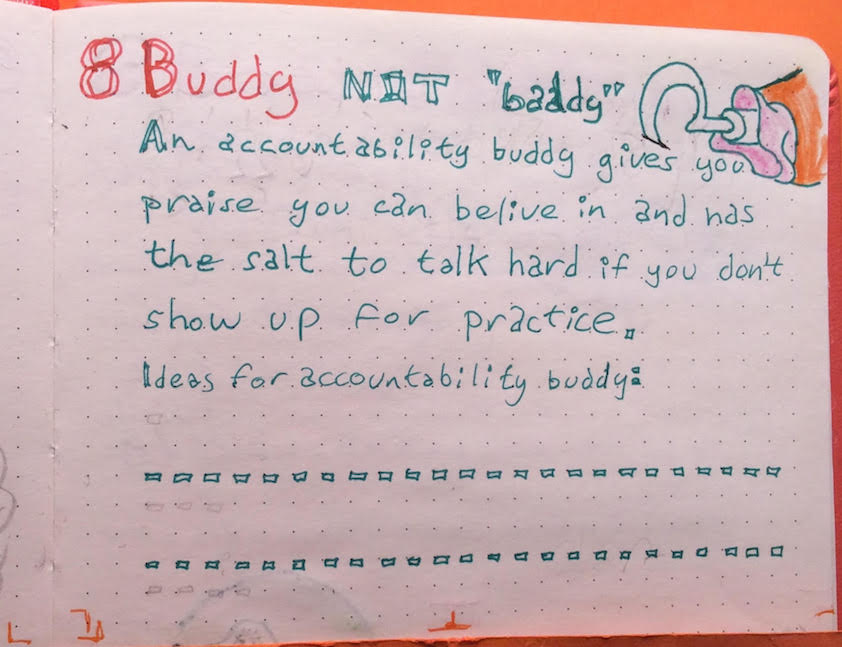 8 Buddy NOT "baddy"
An accountability buddy gives you
praise you can belive in and has
the salt to talk hard if you don't
show up for practice.
Ideas for accountability buddy: